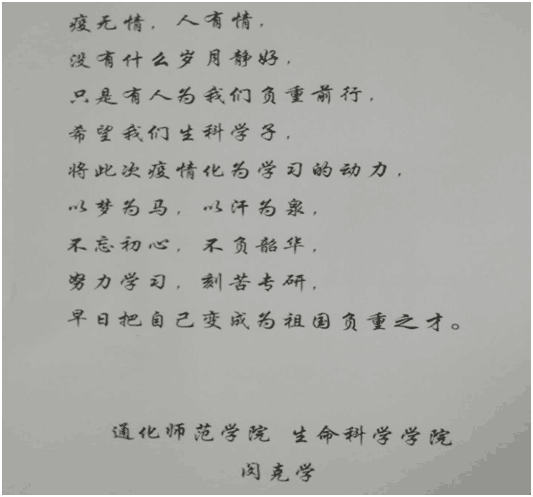 疫无情，人有情，
没有什么岁月静好，
只是有人为我们负重前行，
希望我们生科学子，
将此次疫情化为学习的动力，
以梦为马，以汗为泉，
不忘初心，不负韶华，
努力学习，刻苦专研，
早日把自己变成为祖国负重之才。
通化师范学院 生命科学学院
闵克学